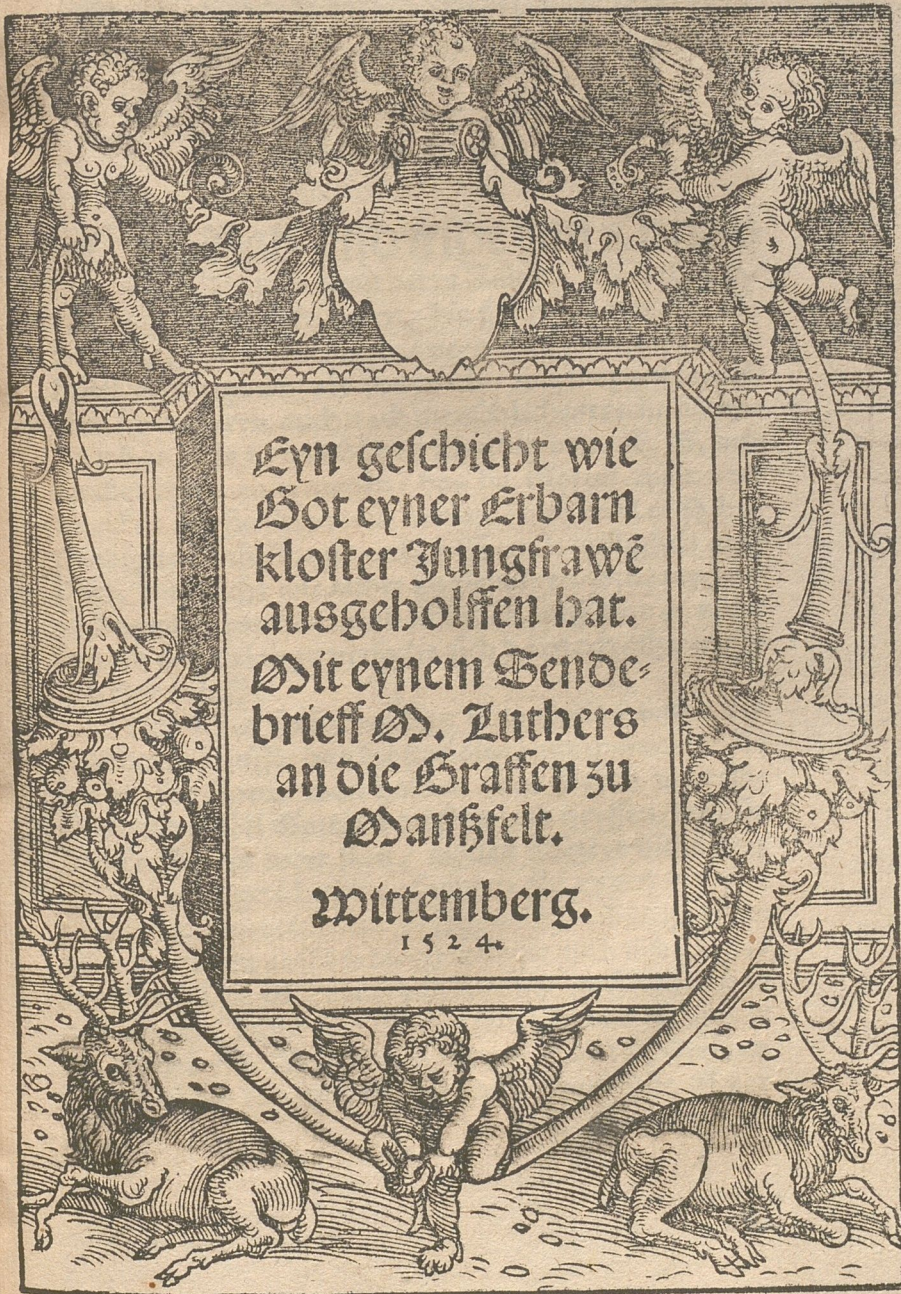 Eyn geſchicht wie
Got eyner Erbarn
kloſter Jungfrawē
ausgeholffen hat.
Mit eynem Sende⸗
brieff M. Luthers
an die Graffen zu
Manſzfelt.
Wittemberg.
1524.